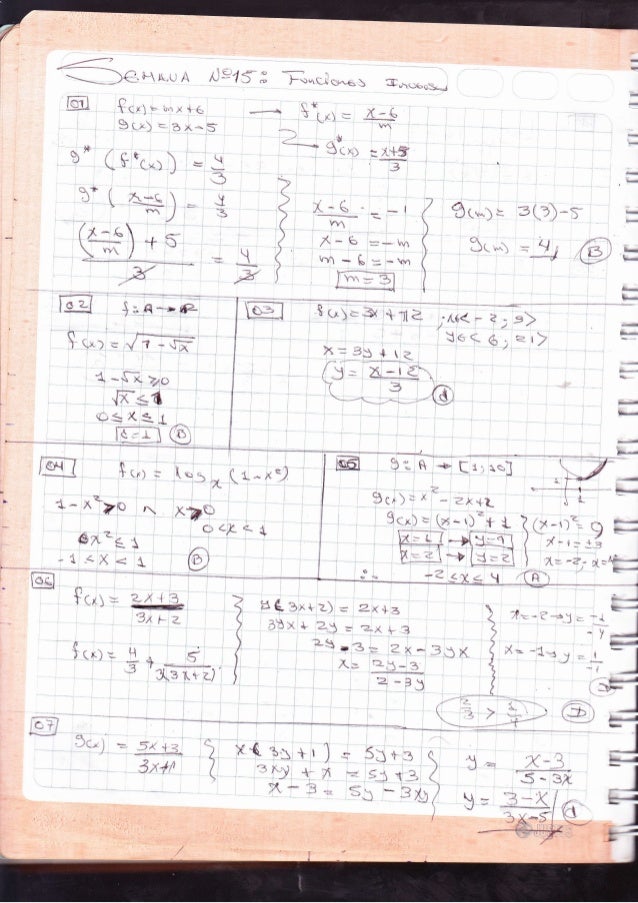 SEMANA Nº15: Funciones Inversas
01
f(x) = mx+6 → f*(x) = x-6/m
g(x) = 3x-5 → g*(x) = x+5/3
g*(f*(x)) = 4/3
g*(x-6/m) = 4/3
(x-6/m)+5/3 = 4/3
x-6/m = -1
x-6 = -m
m-6 = -m
m = 3
g(m) = 3(3)-5
g(m) = 4 B
02 f: A → R
f(x) = √1-√x
1-√x ≥ 0
√x ≤ 1
0 ≤ x ≤ 1
B
03 f(x) = 3x+12 ; x∈<-2; 3>
y∈<6; 21>
x = 3y+12
y = x-12/3
d
04 f(x) = log x (1-x²)
1-x² > 0 ∧ x > 0
0<x<1
x² ≤ 1
-1 < x < 1 B
05 g: A → [1; 10]
g(x) = x² - 2x+2
g(x) = (x-1)²+1
x=2 → y=2
(x-1)² = 9
x-1 = ±3
x=-2
∴ -2 ≤ x ≤ 4 A
06
f(x) = 2x+3/3x+2
f(x) = + 5/3(3x+2)
y(3x+2) = 2x+3
3yx + 2y = 2x+3
2y-3 = 2x-3yx
x = 2y-3/2-3y
07
g(x) = 5x+3/3x+1
x(3y+1) = 5y+3
3xy + x = 5y+3
x-3 = 5y-3xy
y = x-3/5-3x
y = 3-x/3x-5 d